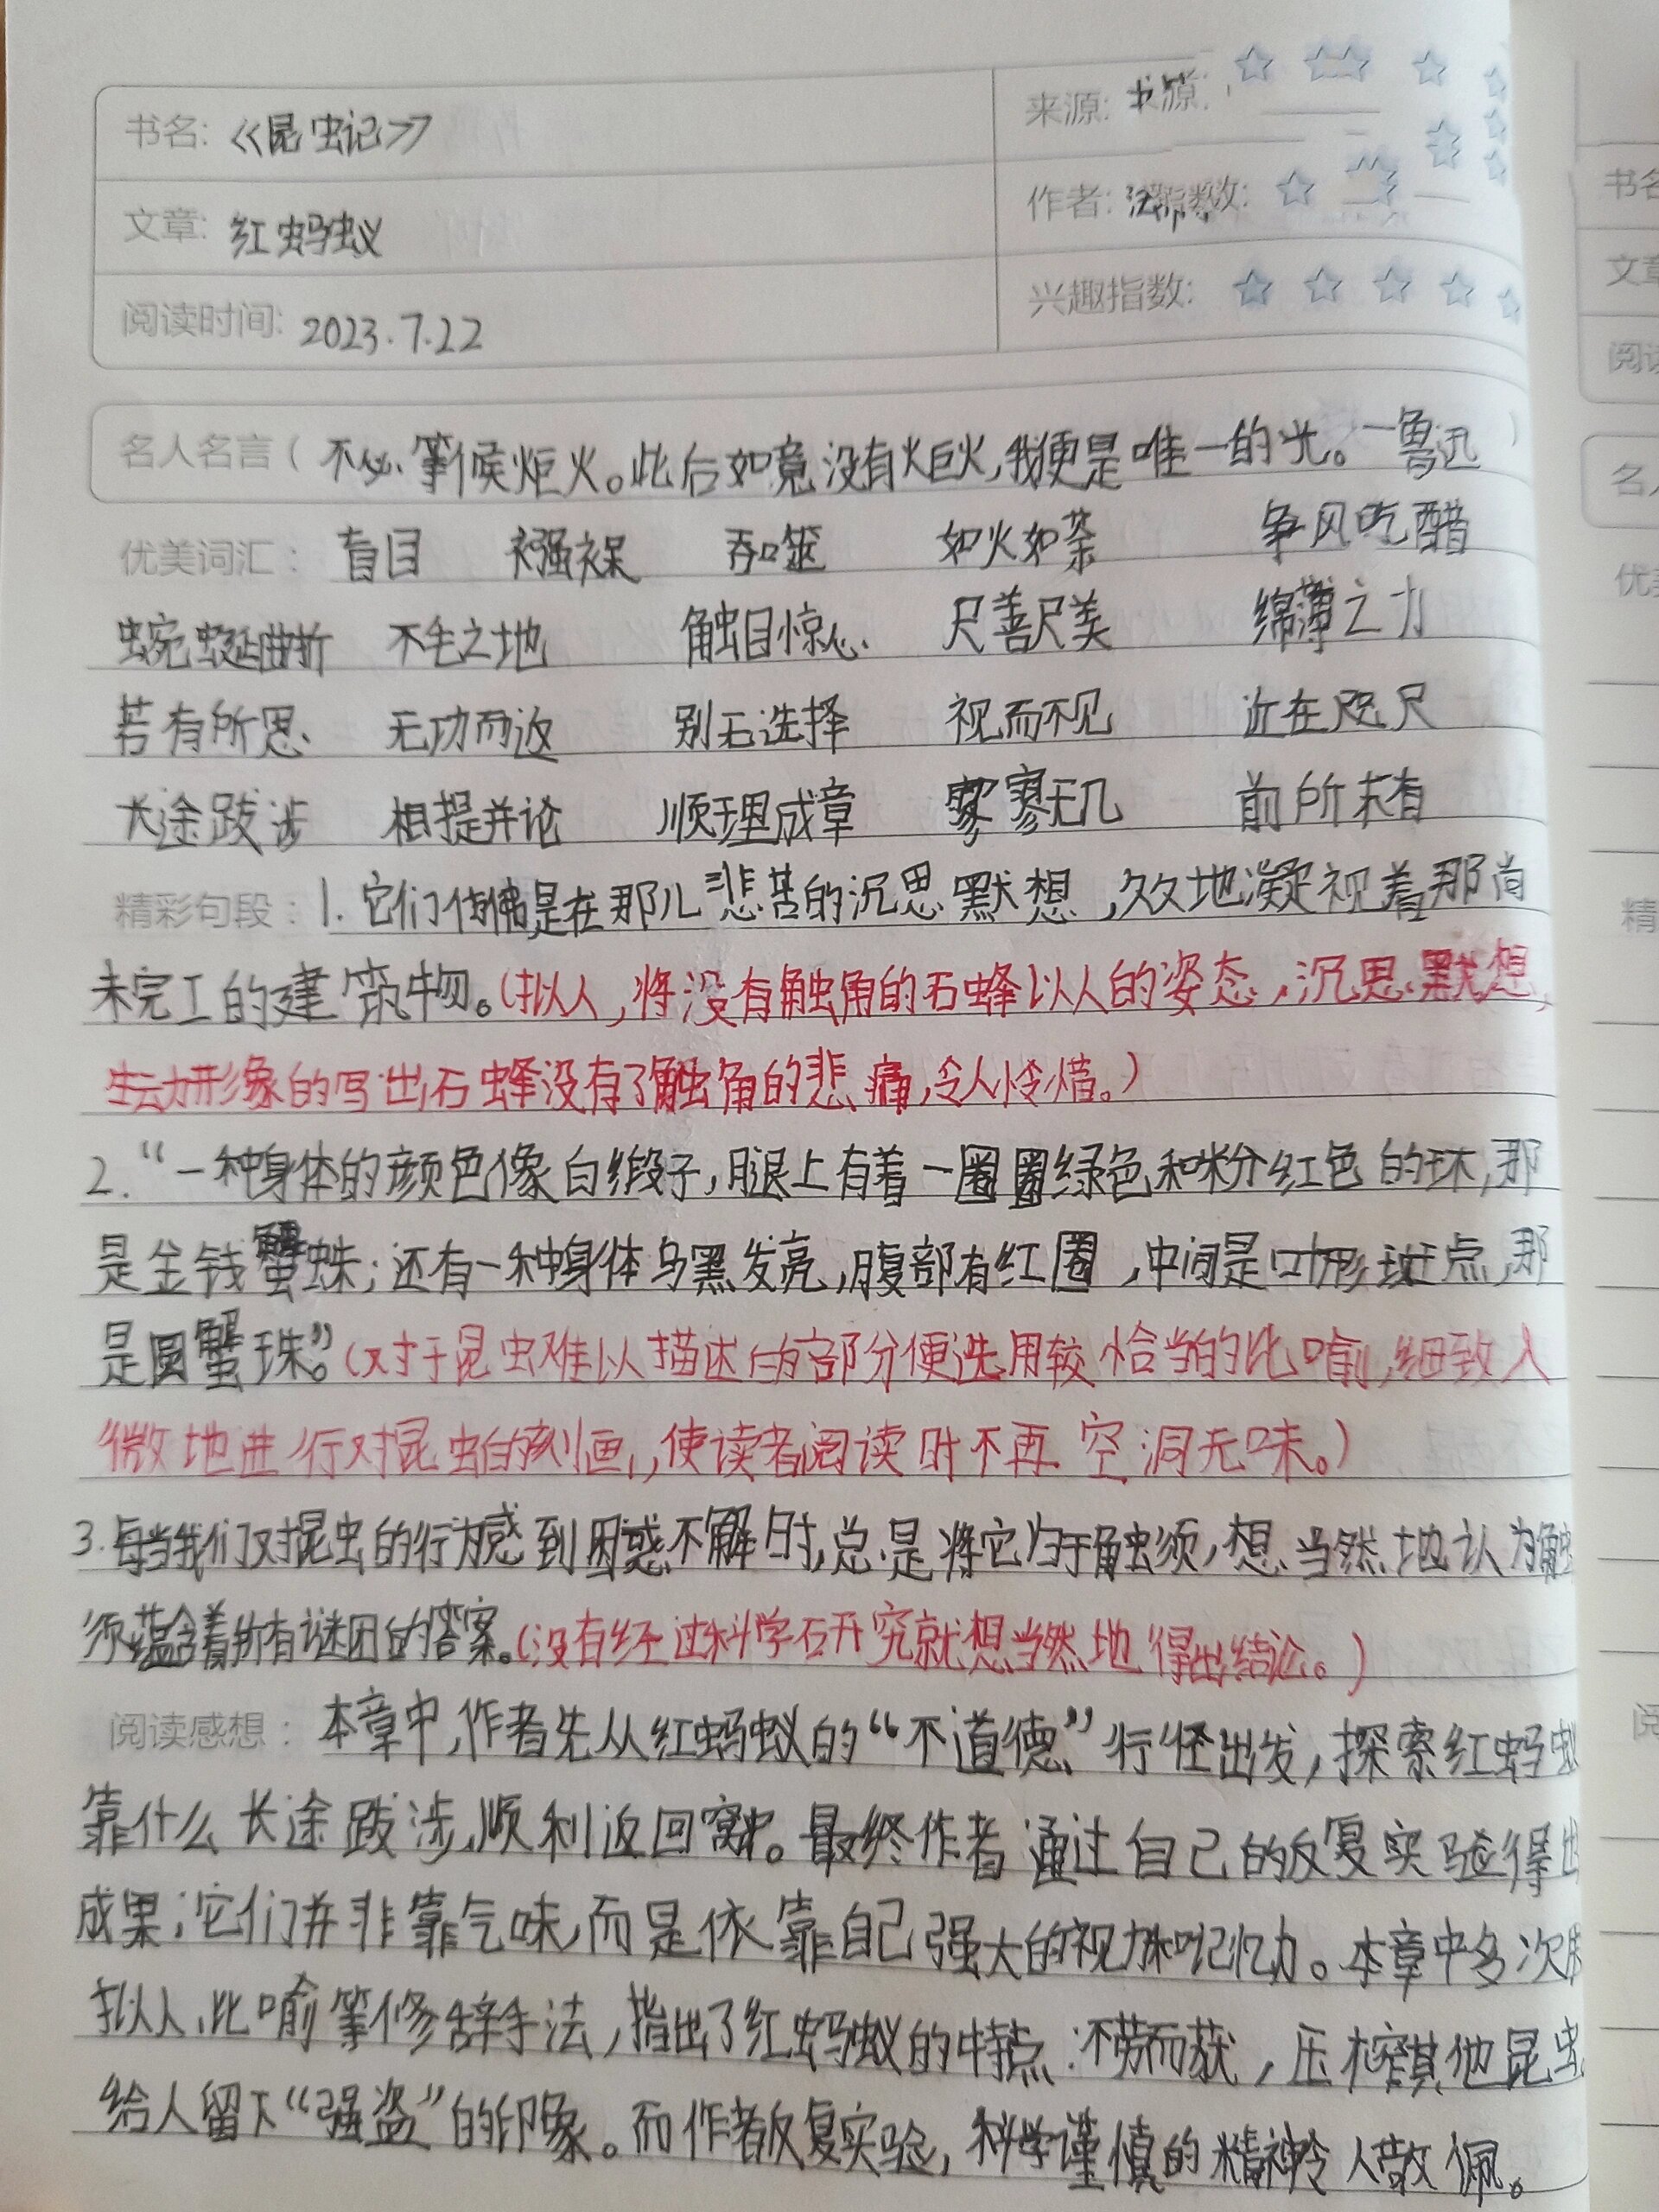 书名:《昆虫记》
来源:
文章: 红蚂蚁
作者:
阅读时间: 2023.7.22
兴趣指数:
名人名言（不必等候炬火。此后如竟没有炬火,我便是唯一的光。一鲁迅）
优美词汇: 盲目 襁褓 吞噬 如火如荼 争风吃醋
蜿蜒曲折 不毛之地 触目惊心 尺善尺美 绵薄之力
若有所思 无功而返 别无选择 视而不见 近在咫尺
长途跋涉 相提并论 顺理成章 寥寥无几 前所未有
精彩句段: 1. 它们仿佛是在那儿悲苦的沉思默想,久久地凝视着那尚
未完工的建筑物。(拟人,将没有触角的石蜂以人的姿态,沉思默想,
生动形象的写出石蜂没有了触角的悲痛,令人怜惜。)
2. “一种身体的颜色像白缎子,腿上有着一圈圈绿色和粉红色的环,那
是金钱蟹蛛;还有一种身体乌黑发亮,腹部有红圈,中间是叶形斑点,那
是圆蟹珠”。(对于昆虫难以描述的部分便选用较恰当的比喻,细致入
微地进行对昆虫的刻画,,使读者阅读时不再空洞无味。)
3. 每当我们对昆虫的行为感到困惑不解时,总是将它归于触须,想当然地认为触
须蕴含着所有谜团的答案。(没有经过科学研究就想当然地得出结论。)
阅读感想: 本章中,作者先从红蚂蚁的“不道德”行径出发,探索红蚂蚁
靠什么长途跋涉,顺利返回窝中。最终作者通过自己的反复实验得出
成果;它们并非靠气味,而是依靠自己强大的视力和记忆力。本章中多次
拟人、比喻等修辞手法,指出了红蚂蚁的特点:不劳而获,压榨其他昆虫
给人留下“强盗”的印象。而作者反复实验,科学谨慎的精神令人敬佩。
书名
文章
阅读